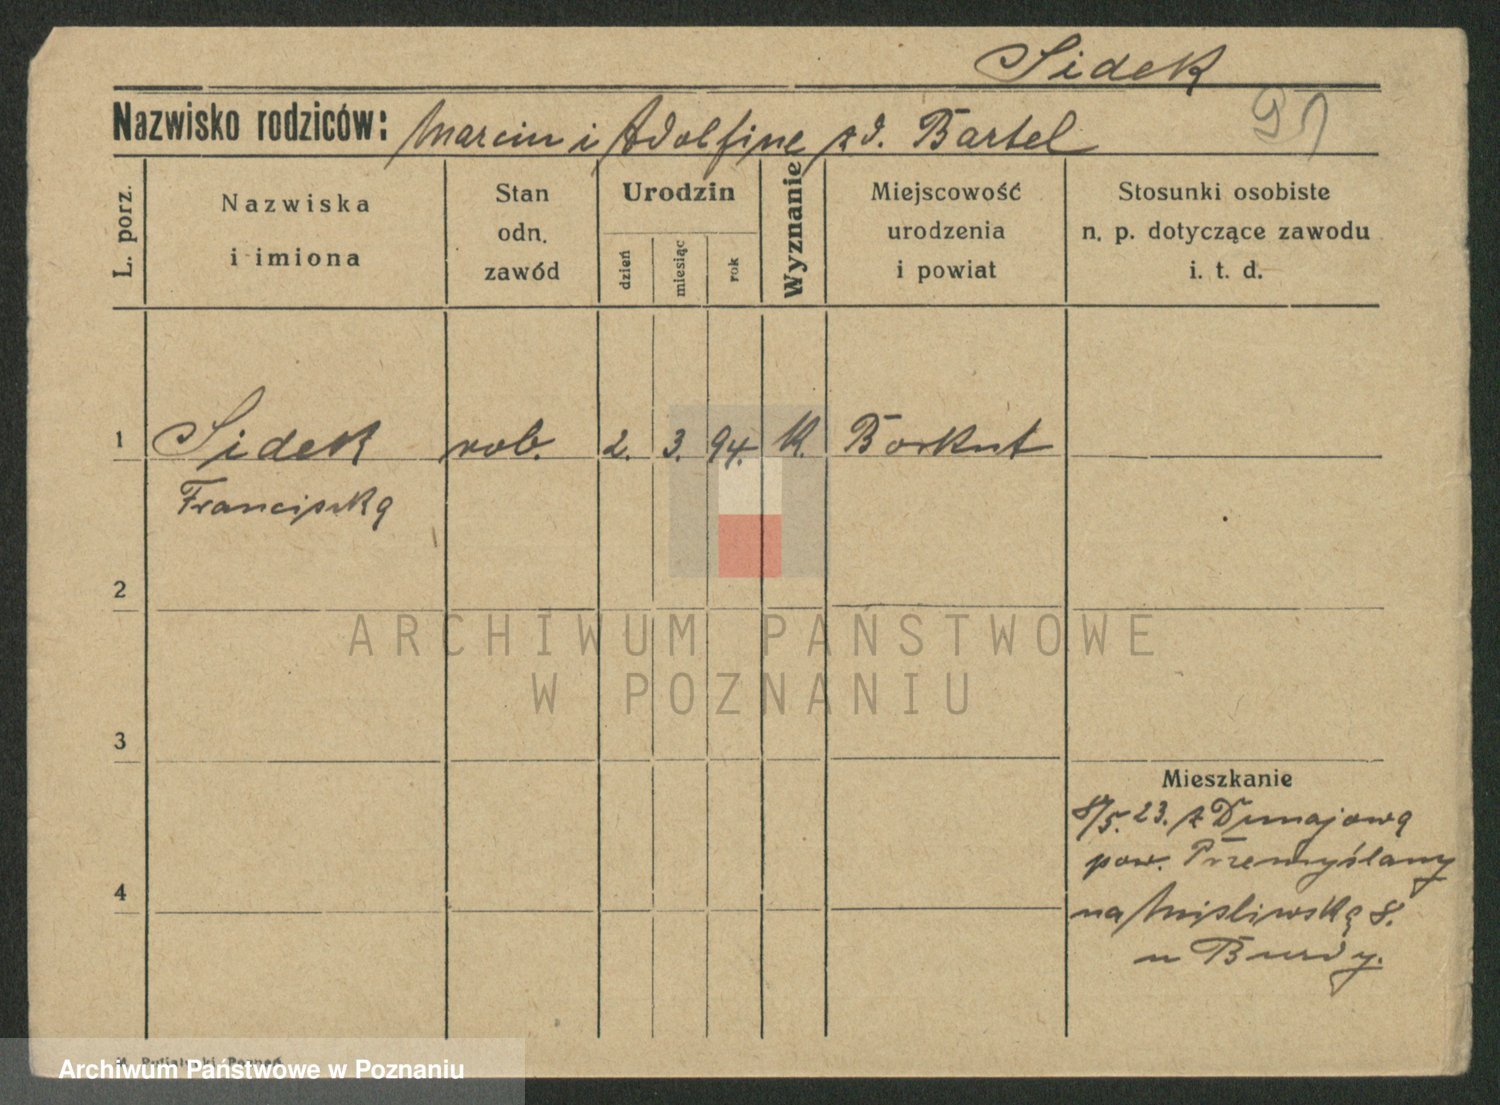 Sidek
Nazwisko rodziców: Marcin i Adolfine zd. Bartel
91
L. porz.
Nazwiska
i imiona
Stan
odn.
zawód
Urodzin
dzień
miesiąc
rok
Wyznanie
Miejscowość
urodzenia
i powiat
Stosunki osobiste
n. p. dotyczące zawodu
i. t. d.
1 Sidek rob. 2. 3. 94. K. Borkut
Franciszka
2
ARCHIWUM PAŃSTWOWE
W POZNANIU
3
Mieszkanie
8/5. 23. z Dunajowa
pow. Przemyślany
4
na Myśliwską 8.
u Burdy.
Poznań
Archiwum Państwowe w Poznaniu